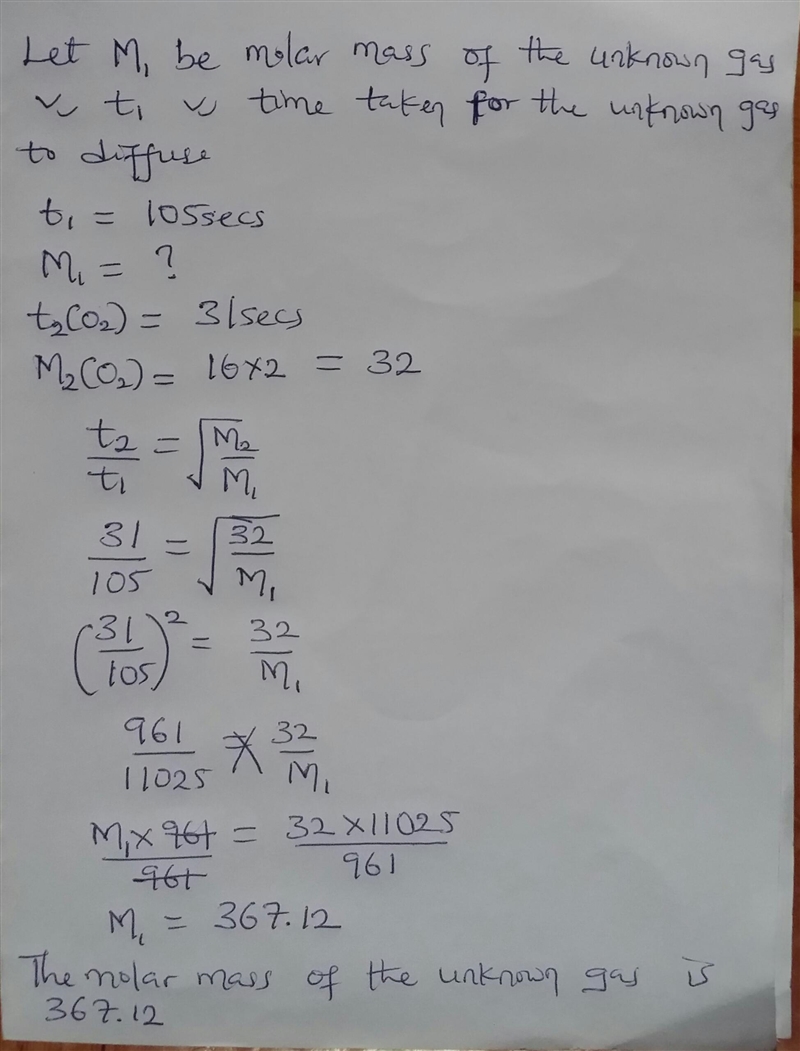 Let M₁ be molar mass of the unknown gas
〃 t₁ 〃 time taken for the unknown gas
to diffuse
t₁ = 105secs
M₁ = ?
t₂(O₂) = 31secs
M₂(O₂) = 16×2 = 32
t₂/t₁ = √(M₂/M₁)
31/105 = √(32/M₁)
(31/105)² = 32/M₁
961/11025 = 32/M₁
M₁×961/961 = 32×11025/961
M₁ = 367.12
The molar mass of the unknown gas is
367.12